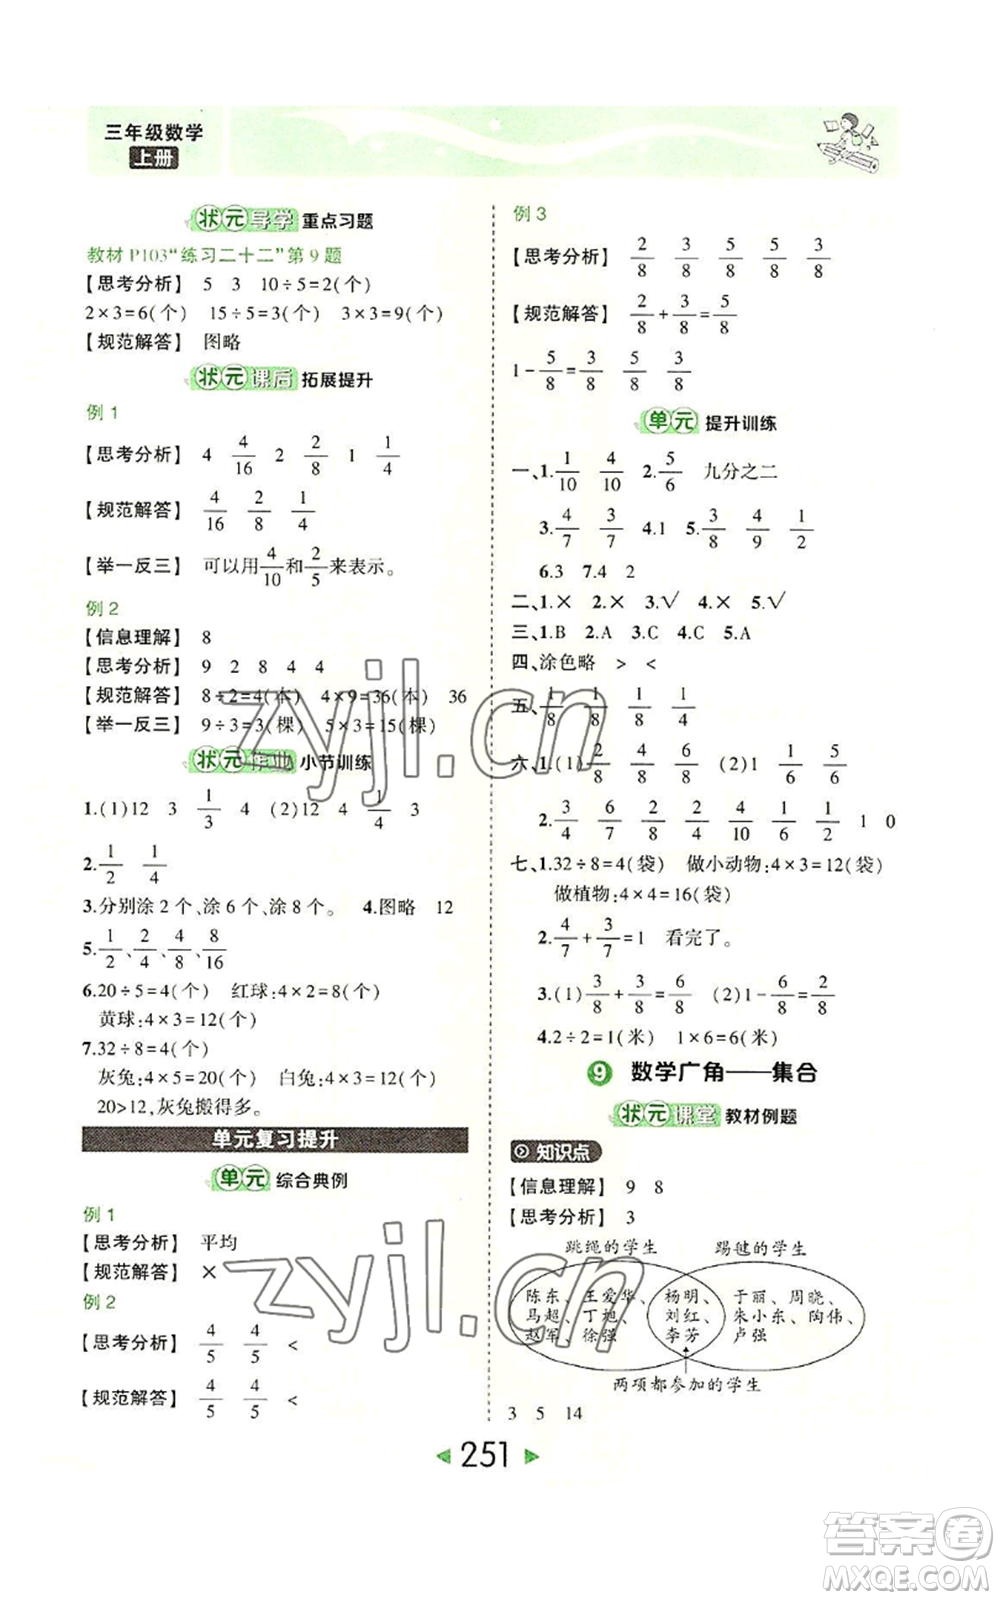 三年级数学
上册
状元导学 重点习题
教材 P103“练习二十二”第 9 题
【思考分析】 5 3 10÷5=2(个)
2×3=6(个) 15÷5=3(个) 3×3=9(个)
【规范解答】 图略
状元课后 拓展提升
例 1
【思考分析】 4 4/16 2 2/8 1 1/4
【规范解答】 4/16 2/8 1/4
【举一反三】 可以用4/10和2/5来表示。
例 2
【信息理解】 8
【思考分析】 9 2 8 4 4
【规范解答】 8÷2=4(本) 4×9=36(本) 36
【举一反三】 9÷3=3(棵) 5×3=15(棵)
状元作业 小节训练
1.(1)12 3 1/3 4 (2)12 4 1/4 3
2.1/2 1/4
3.分别涂 2 个、涂 6 个、涂 8 个。 4.图略 12
5.1/2、2/4、4/8、8/16
6.20÷5=4(个) 红球:4×2=8(个)
黄球:4×3=12(个)
7.32÷8=4(个)
灰兔:4×5=20(个) 白兔:4×3=12(个)
20>12,灰兔搬得多。
单元复习提升
单元 综合典例
例 1
【思考分析】 平均
【规范解答】 ×
例 2
【思考分析】 4/5 4/5 <
【规范解答】 4/5 4/5 <
例 3
【思考分析】 2/8 3/8 5/8 5/8 3/8
【规范解答】 2/8+3/8=5/8
1-5/8=3/8
单元 提升训练
一、1.1/10 4/10 2.5/6 九分之二
3.4/7 3/7 4.1 5.3/8 4/9 1/2
6.3 7.4 2
二、1.× 2.× 3.√ 4.× 5.√
三、1.B 2.A 3.C 4.C 5.A
四、涂色略 > <
五、1/8 1/8 1/4 1/4
六、1.(1)2/8 4/8 6/8 (2)1 1/6 5/6
2.3/4 6/7 2/8 2/4 4/10 1/6 1/2 1 0
七、1.32÷8=4(袋) 做小动物:4×3=12(袋)
做植物:4×4=16(袋)
2.4/7+3/7=1 看完了。
3.(1)3/8+3/8=6/8 (2)1-6/8=2/8
4.2÷2=1(米) 1×6=6(米)
9 数学广角——集合
状元课堂 教材例题
知识点
【信息理解】 9 8
【思考分析】 3
跳绳的学生 踢毽的学生
陈东、王爱华、 杨明、 于丽、周晓、
马超、丁旭、 刘红、 朱小东、陶伟、
赵军、徐强 李芳 卢强
两项都参加的学生
3 5 14
251
zyjl.cn
zyjl.cn
答案圈
MXQE.COM